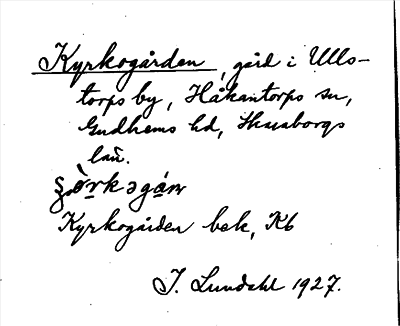 Kyrkogården, gård i Ulls-
torps by, Håkantorps sn,
Gudhems hd, Skaraborgs
län.
Kyrkogården bek, Kb
I. Lundahl 1927.